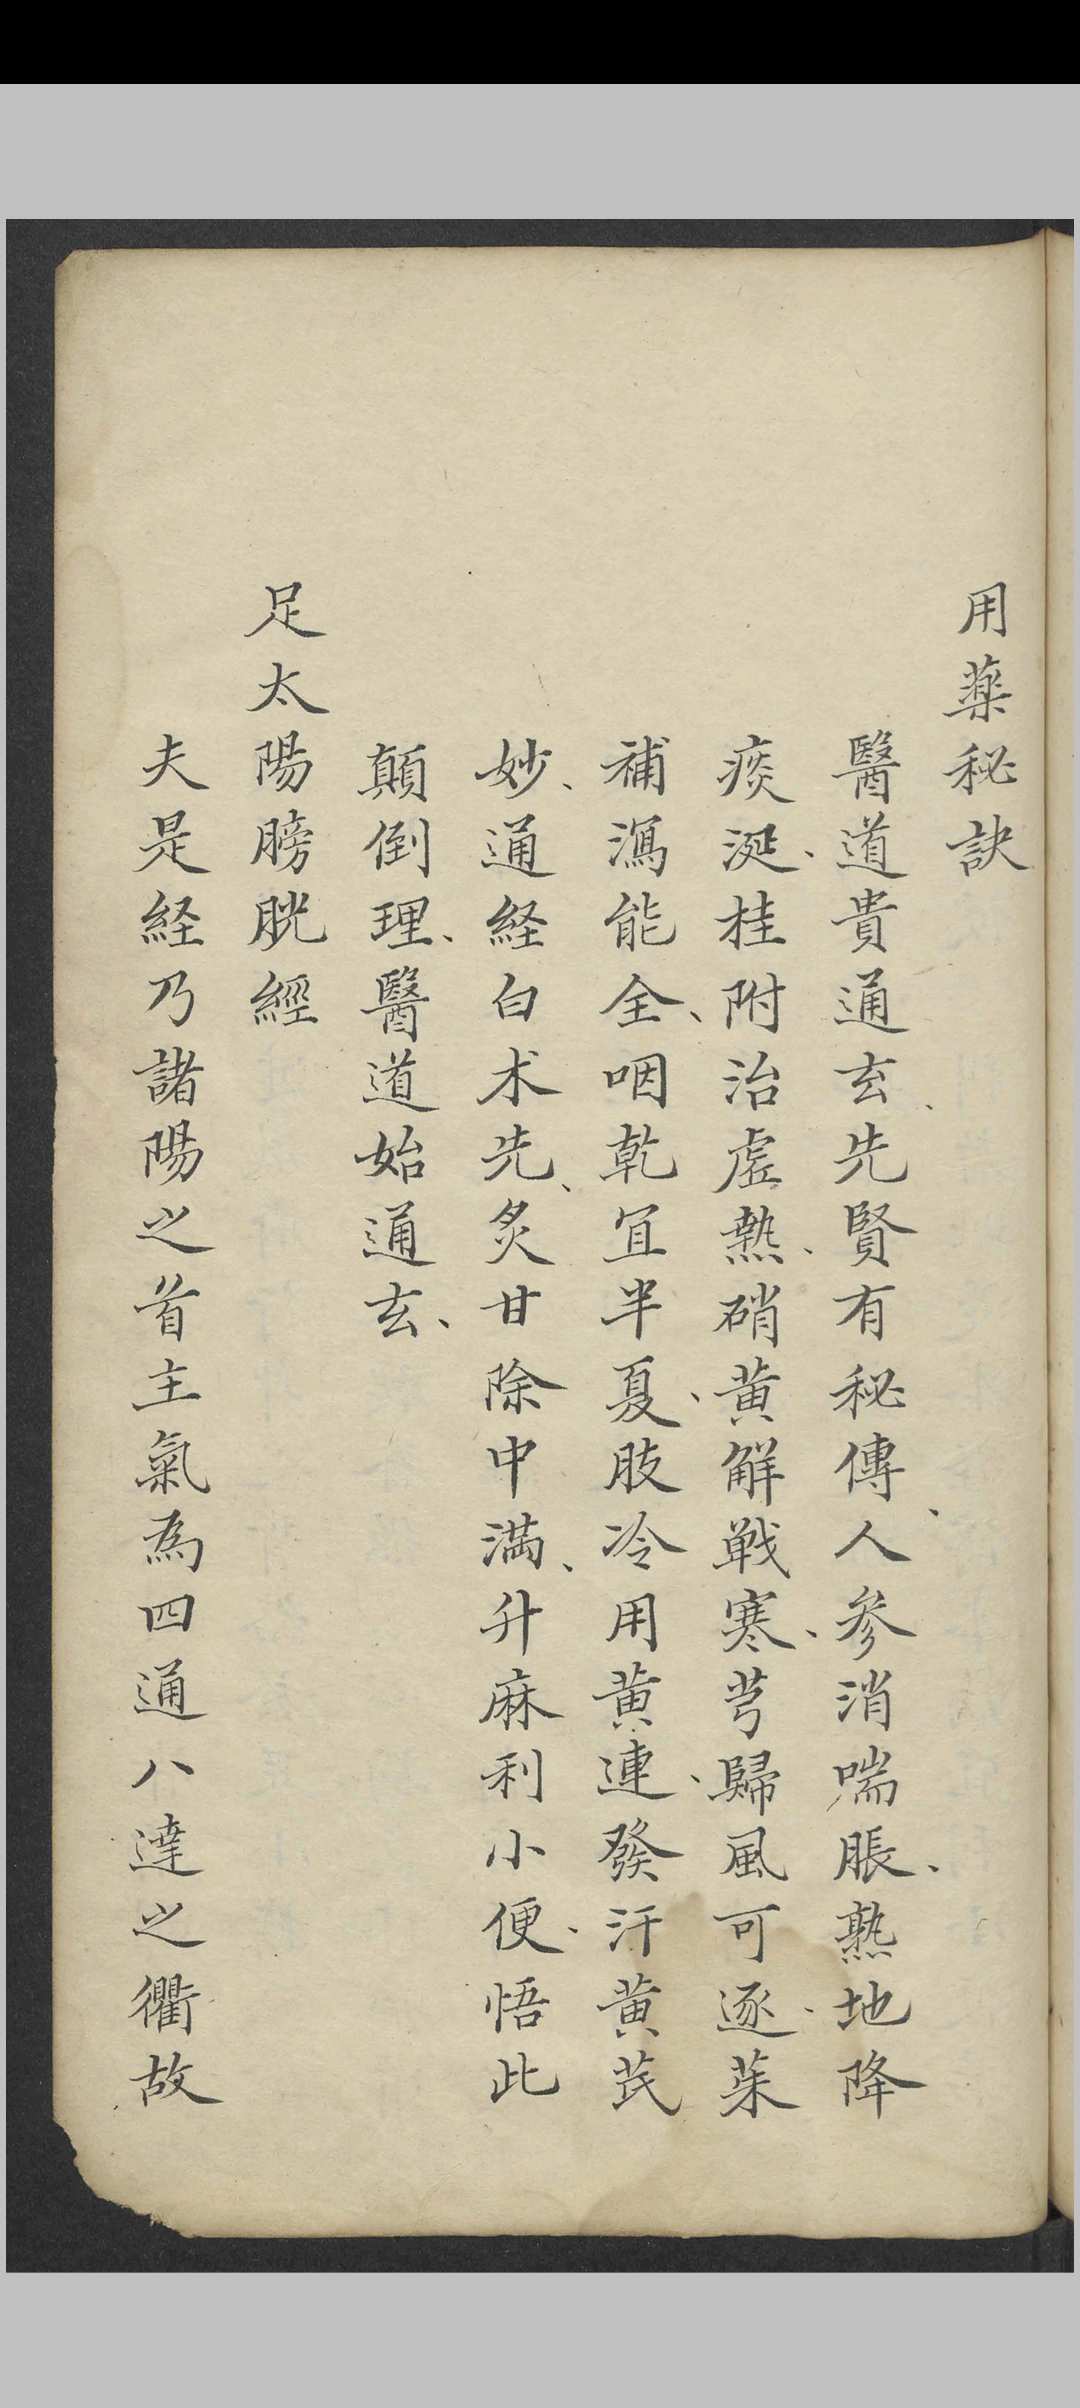 用藥秘訣
醫道貴通玄、先賢有秘傳、人参消喘脹、熟地降
痰涎、桂附治虚熱、硝黄解戦寒、芎歸風可逐、茱
補瀉能全、咽乾宜半夏、肢冷用黄連、發汗黄芪
妙、通経白朮先、炙甘除中満、升麻利小便、悟此
顛倒理、醫道始通玄、
足太陽膀胱經
夫是経乃諸陽之首主氣為四通八達之衢故